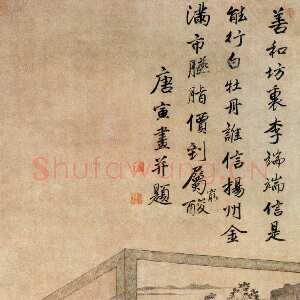 善和坊裏李端端信是
能行白牡丹誰信揚州金
滿市臙脂價到屬窮酸
唐寅畫并題
Shufawang.CN